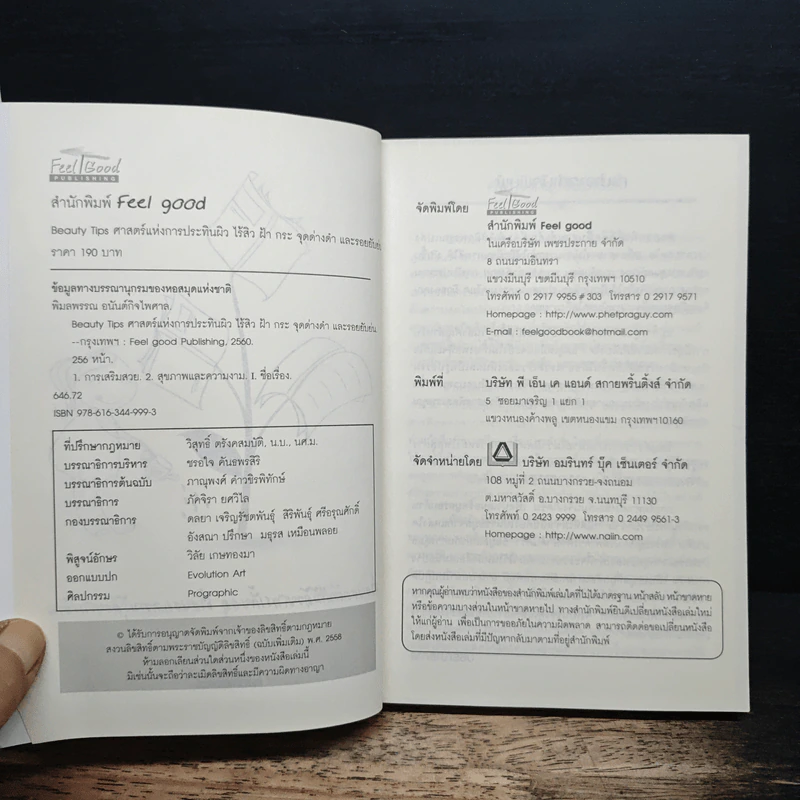 Feel Good
PUBLISHING
สำนักพิมพ์ Feel good
Beauty Tips ศาสตร์แห่งการประทินผิว ไร้สิว ฝ้า กระ จุดด่างดำ และรอยยับย่น
ราคา 190 บาท
ข้อมูลทางบรรณานุกรมของหอสมุดแห่งชาติ
พิมลพรรณ อนันต์กิจไพศาล.
Beauty Tips ศาสตร์แห่งการประทินผิว ไร้สิว ฝ้า กระ จุดด่างดำ และรอยยับย่น
--กรุงเทพฯ : Feel good Publishing, 2560.
256 หน้า.
1. การเสริมสวย. 2. สุขภาพและความงาม. I. ชื่อเรื่อง.
646.72
ISBN 978-616-344-999-3
ที่ปรึกษากฎหมาย วิสุทธิ์ ตรังคสมบัติ, น.บ., นศ.ม.
บรรณาธิการบริหาร ชรอใจ คันธพรสิริ
บรรณาธิการต้นฉบับ ภาณุพงศ์ คำวชิรพิทักษ์
บรรณาธิการ ภัคจิรา ยศวิไล
กองบรรณาธิการ ดลยา เจริญรัชตพันธุ์ สิริพันธุ์ ศรีอรุณศักดิ์
อังสณา ปรึกษา มธุรส เหมือนพลอย
พิสูจน์อักษร วิลัย เกษทองมา
ออกแบบปก Evolution Art
ศิลปกรรม Prographic
© ได้รับการอนุญาตจัดพิมพ์จากเจ้าของลิขสิทธิ์ตามกฎหมาย
สงวนลิขสิทธิ์ตามพระราชบัญญัติลิขสิทธิ์ (ฉบับเพิ่มเติม) พ.ศ. 2558
ห้ามลอกเลียนส่วนใดส่วนหนึ่งของหนังสือเล่มนี้
มิเช่นนั้นจะถือว่าละเมิดลิขสิทธิ์และมีความผิดทางอาญา
จัดพิมพ์โดย Feel Good
PUBLISHING
สำนักพิมพ์ Feel good
ในเครือบริษัท เพชรประกาย จำกัด
8 ถนนรามอินทรา
แขวงมีนบุรี เขตมีนบุรี กรุงเทพฯ 10510
โทรศัพท์ 0 2917 9955 # 303 โทรสาร 0 2917 9571
Homepage : http://www.phetpraguy.com
E-mail : feelgoodbook@hotmail.com
พิมพ์ที่ บริษัท พี เอ็น เค แอนด์ สกายพริ้นติ้งส์ จำกัด
5 ซอยมาเจริญ 1 แยก 1
แขวงหนองค้างพลู เขตหนองแขม กรุงเทพฯ10160
จัดจำหน่ายโดย บริษัท อมรินทร์ บุ๊ค เซ็นเตอร์ จำกัด
108 หมู่ที่ 2 ถนนบางกรวย-จงถนอม
ต.มหาสวัสดิ์ อ.บางกรวย จ.นนทบุรี 11130
โทรศัพท์ 0 2423 9999 โทรสาร 0 2449 9561-3
Homepage : http://www.naiin.com
หากคุณผู้อ่านพบว่าหนังสือของสำนักพิมพ์เล่มใดที่ไม่ได้มาตรฐาน หน้าสลับ หน้าขาดหาย
หรือข้อความบางส่วนในหน้าขาดหายไป ทางสำนักพิมพ์ยินดีเปลี่ยนหนังสือเล่มใหม่
ให้แก่ผู้อ่าน เพื่อเป็นการขออภัยในความผิดพลาด สามารถติดต่อขอเปลี่ยนหนังสือ
โดยส่งหนังสือเล่มที่มีปัญหากลับมาตามที่อยู่สำนักพิมพ์